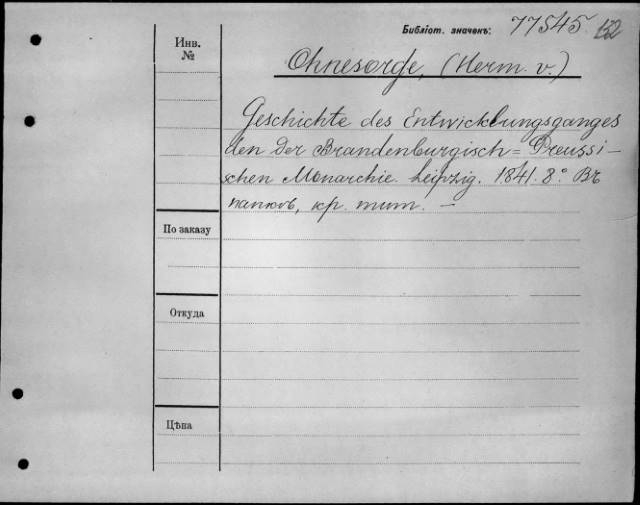 Библіот. значекъ: 77545 152
Инв.
№
Ohnesorge, (Herm. v.)
Geschichte des Entwicklungsganges
den der Brandenburgisch=Preussi-
schen Monarchie. Leipzig. 1841. 8° Въ
папкѣ, кр. тит. —
По заказу
Откуда
Цѣна